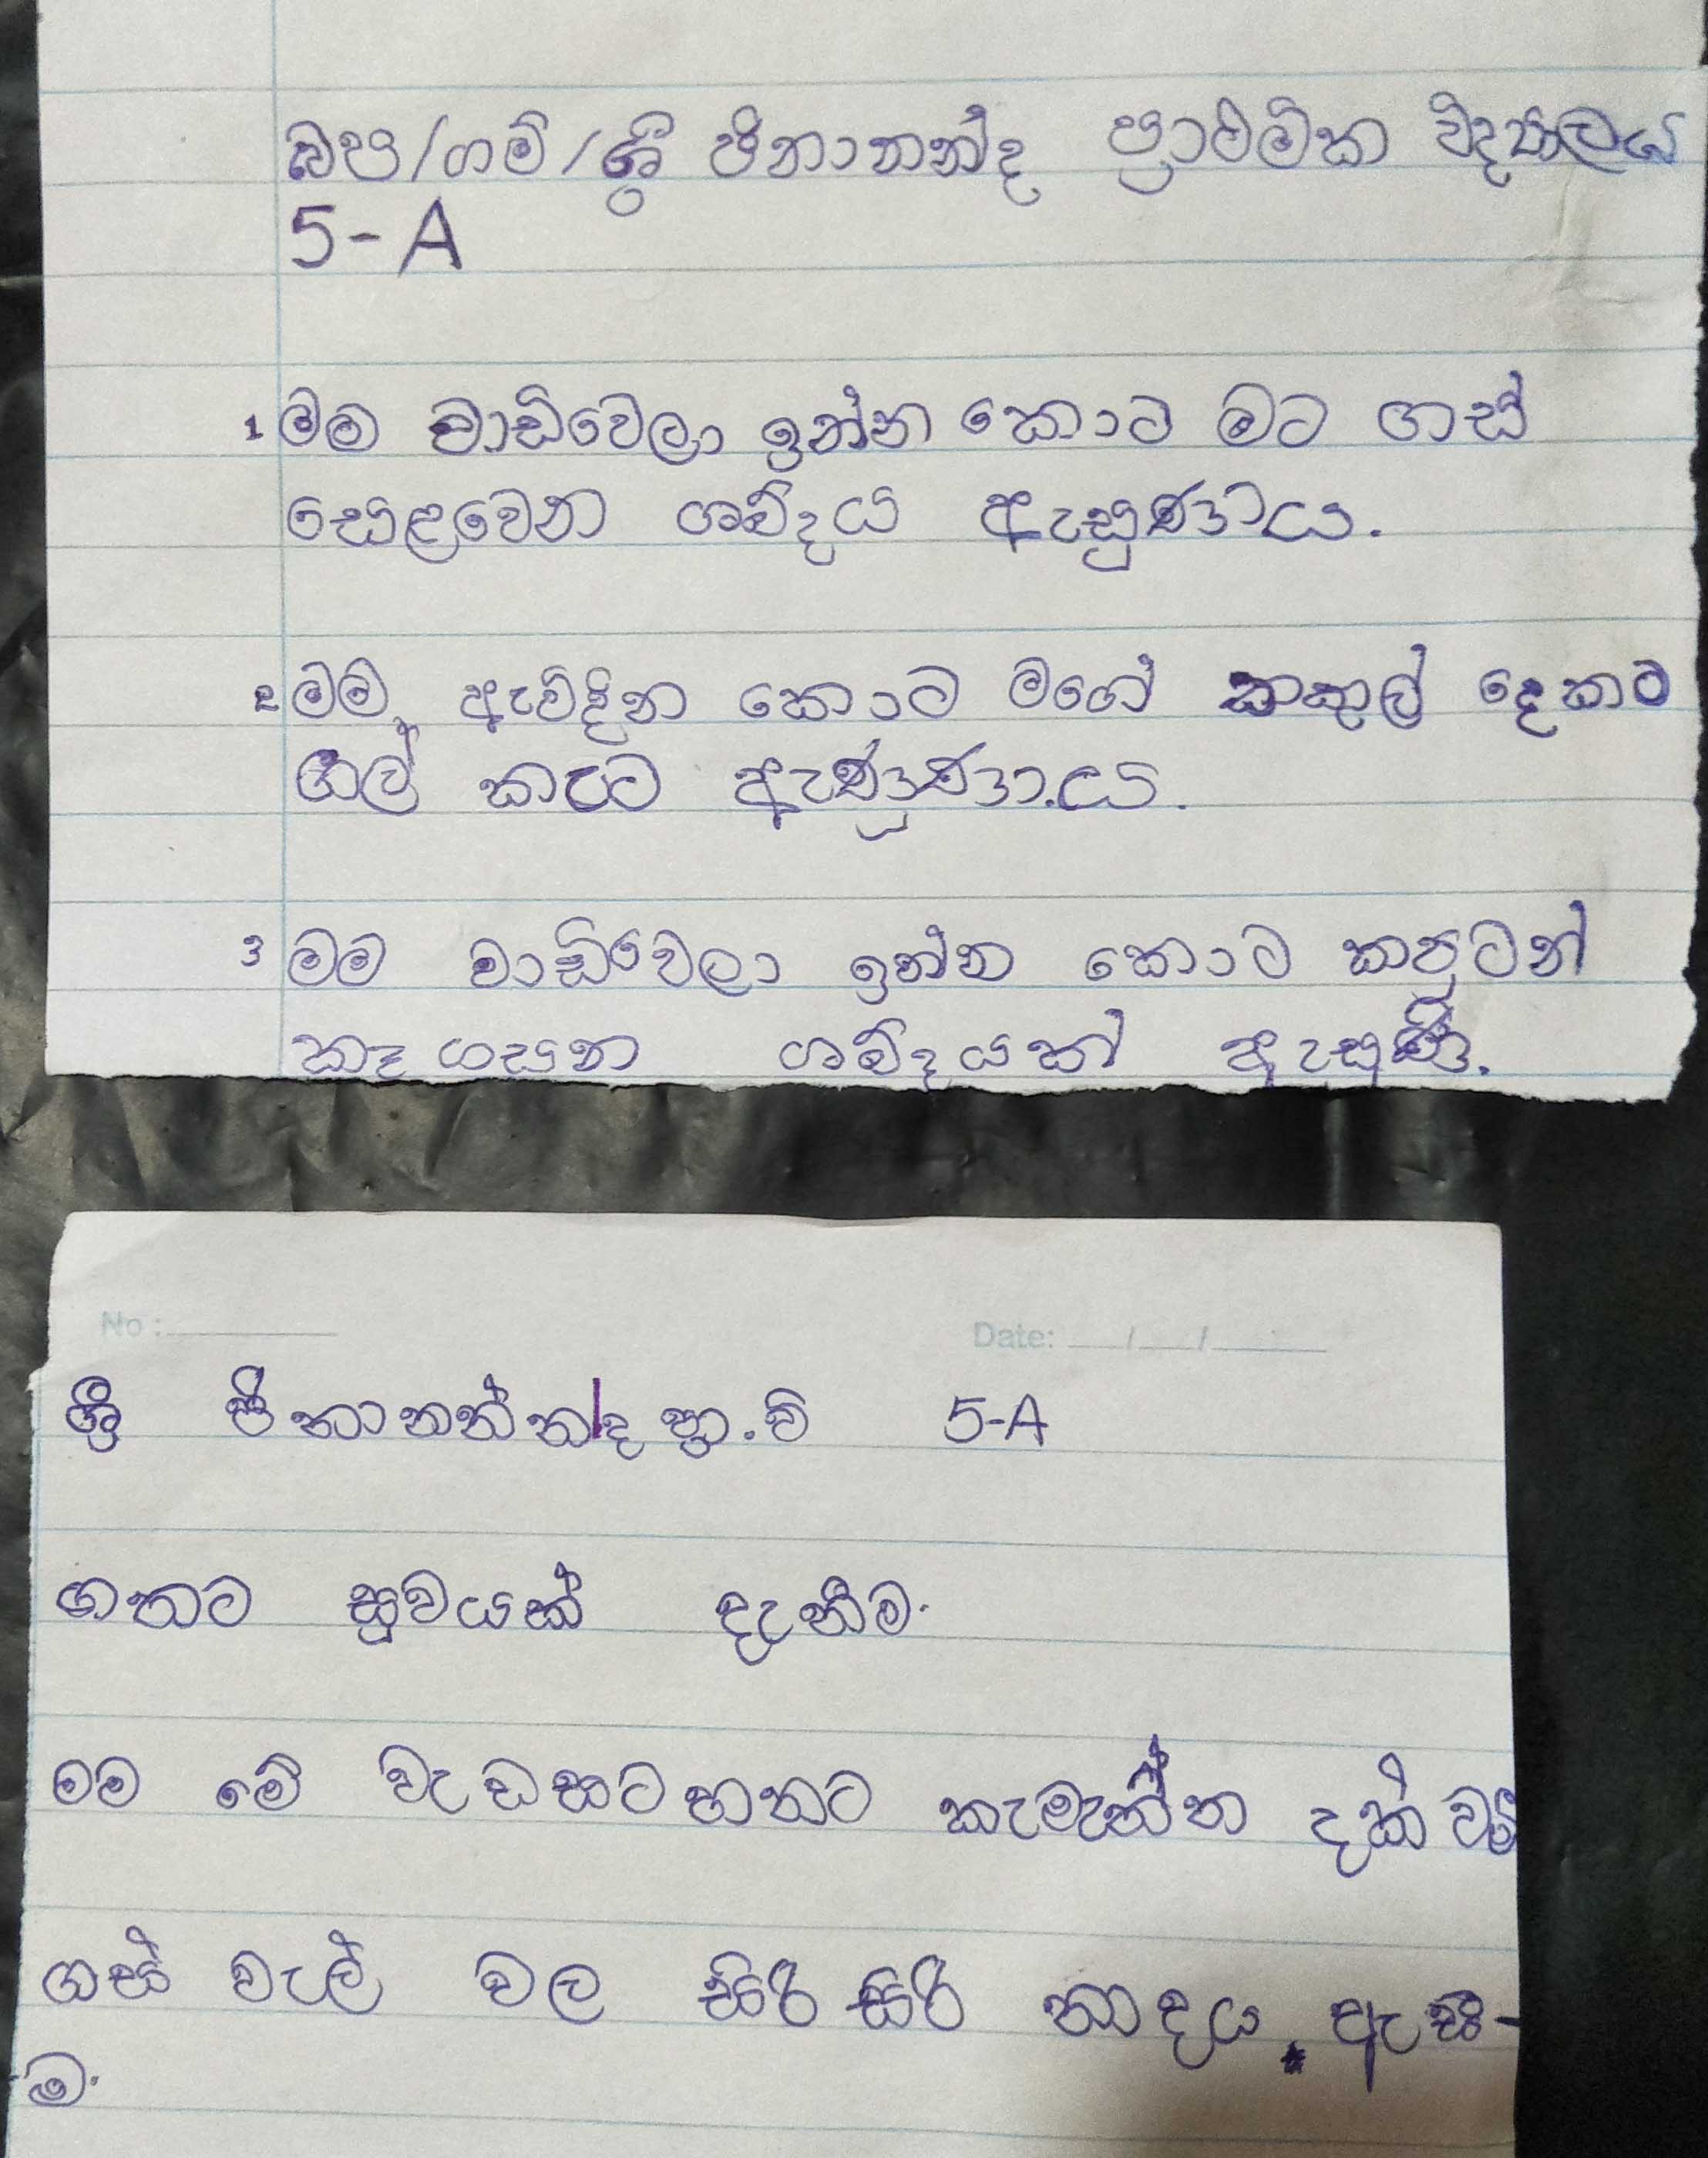 බප/ගම්/ශ්‍රී ජිනානන්ද ප්‍රාථමික විද්‍යාලය
5-A
1 මම වාඩිවෙලා ඉන්න කොට මට ගස්
සෙළවෙන ශබ්දය ඇසුණාය.
2 මම, ඇවිදින කොට මගේ කකුල් දෙකට
ගල් කැට ඇණුණාය.
3 මම වාඩිවෙලා ඉන්න කොට කපුටන්
කෑ ගසන ශබ්දයක් ඇසුණි.
No : Date: / /
ශ්‍රී ජිනානන්න්ද ප්‍රා.වි 5-A
ගතට සුවයක් දැනීම.
මම මේ වැඩසටහනට කැමැත්ත දක්වයි
ගස් වැල් වල සිරි සිරි නාදය ඇසී-
ම.